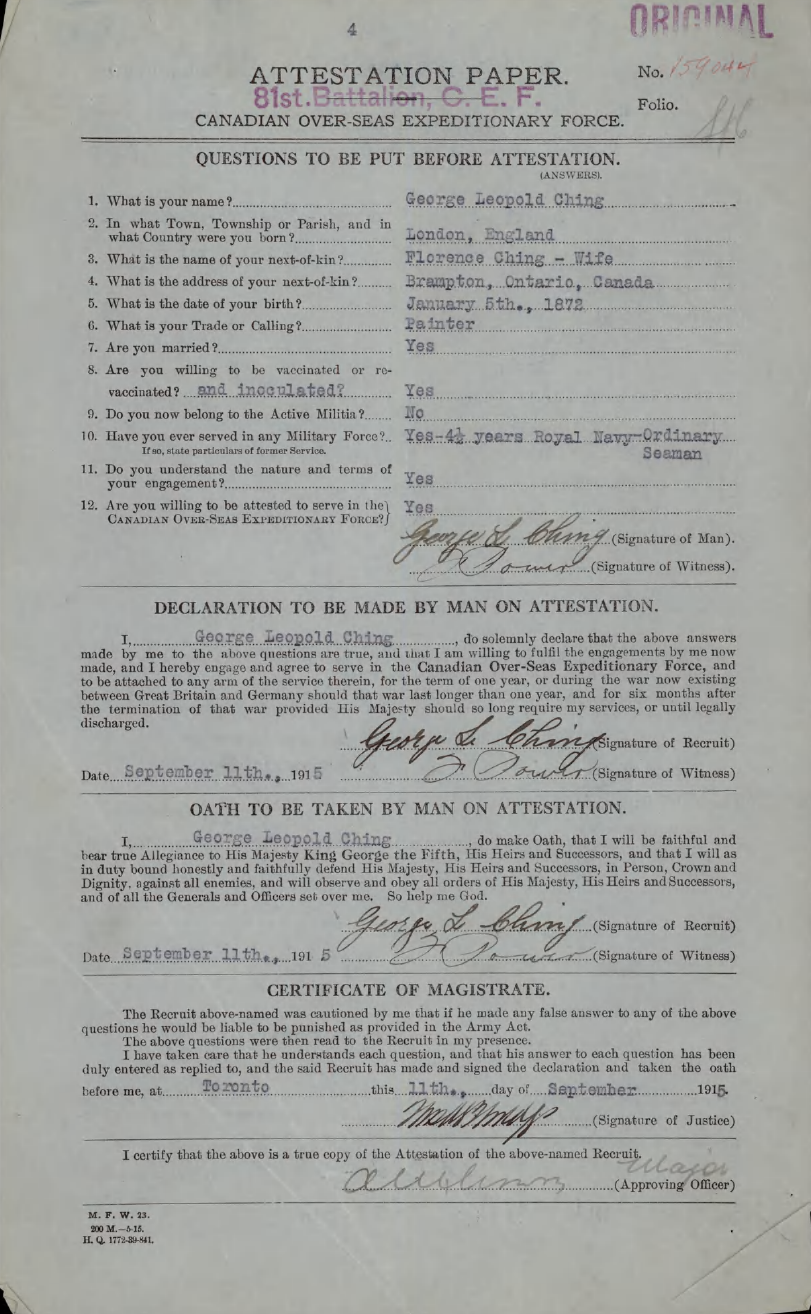 4
ORIGINAL
ATTESTATION PAPER.
No. 159044
81st. Battalion, C. E. F.
Folio.
CANADIAN OVER-SEAS EXPEDITIONARY FORCE.
QUESTIONS TO BE PUT BEFORE ATTESTATION.
(ANSWERS).
1. What is your name? George Leopold Ching
2. In what Town, Township or Parish, and in
what Country were you born? London, England
3. What is the name of your next-of-kin? Florence Ching - Wife
4. What is the address of your next-of-kin? Brampton, Ontario, Canada
5. What is the date of your birth? January 5th., 1872
6. What is your Trade or Calling? Painter
7. Are you married? Yes
8. Are you willing to be vaccinated or re-
vaccinated? and inoculated? Yes
9. Do you now belong to the Active Militia? No
10. Have you ever served in any Military Force? Yes-4½ years Royal Navy-Ordinary
If so, state particulars of former Service. Seaman
11. Do you understand the nature and terms of
your engagement? Yes
12. Are you willing to be attested to serve in the
CANADIAN OVER-SEAS EXPEDITIONARY FORCE? Yes
George L Ching (Signature of Man).
Power (Signature of Witness).
DECLARATION TO BE MADE BY MAN ON ATTESTATION.
I, George Leopold Ching, do solemnly declare that the above answers
made by me to the above questions are true, and that I am willing to fulfil the engagements by me now
made, and I hereby engage and agree to serve in the Canadian Over-Seas Expeditionary Force, and
to be attached to any arm of the service therein, for the term of one year, or during the war now existing
between Great Britain and Germany should that war last longer than one year, and for six months after
the termination of that war provided His Majesty should so long require my services, or until legally
discharged.
George L Ching (Signature of Recruit)
Date September 11th., 1915 Power (Signature of Witness)
OATH TO BE TAKEN BY MAN ON ATTESTATION.
I, George Leopold Ching, do make Oath, that I will be faithful and
bear true Allegiance to His Majesty King George the Fifth, His Heirs and Successors, and that I will as
in duty bound honestly and faithfully defend His Majesty, His Heirs and Successors, in Person, Crown and
Dignity, against all enemies, and will observe and obey all orders of His Majesty, His Heirs and Successors,
and of all the Generals and Officers set over me. So help me God.
George L Ching (Signature of Recruit)
Date September 11th., 1915 Power (Signature of Witness)
CERTIFICATE OF MAGISTRATE.
The Recruit above-named was cautioned by me that if he made any false answer to any of the above
questions he would be liable to be punished as provided in the Army Act.
The above questions were then read to the Recruit in my presence.
I have taken care that he understands each question, and that his answer to each question has been
duly entered as replied to, and the said Recruit has made and signed the declaration and taken the oath
before me, at Toronto this 11th., day of September 1915.
(Signature of Justice)
I certify that the above is a true copy of the Attestation of the above-named Recruit.
Major
(Approving Officer)
M. F. W. 23.
200 M.-5-15.
H. Q. 1772-39-841.